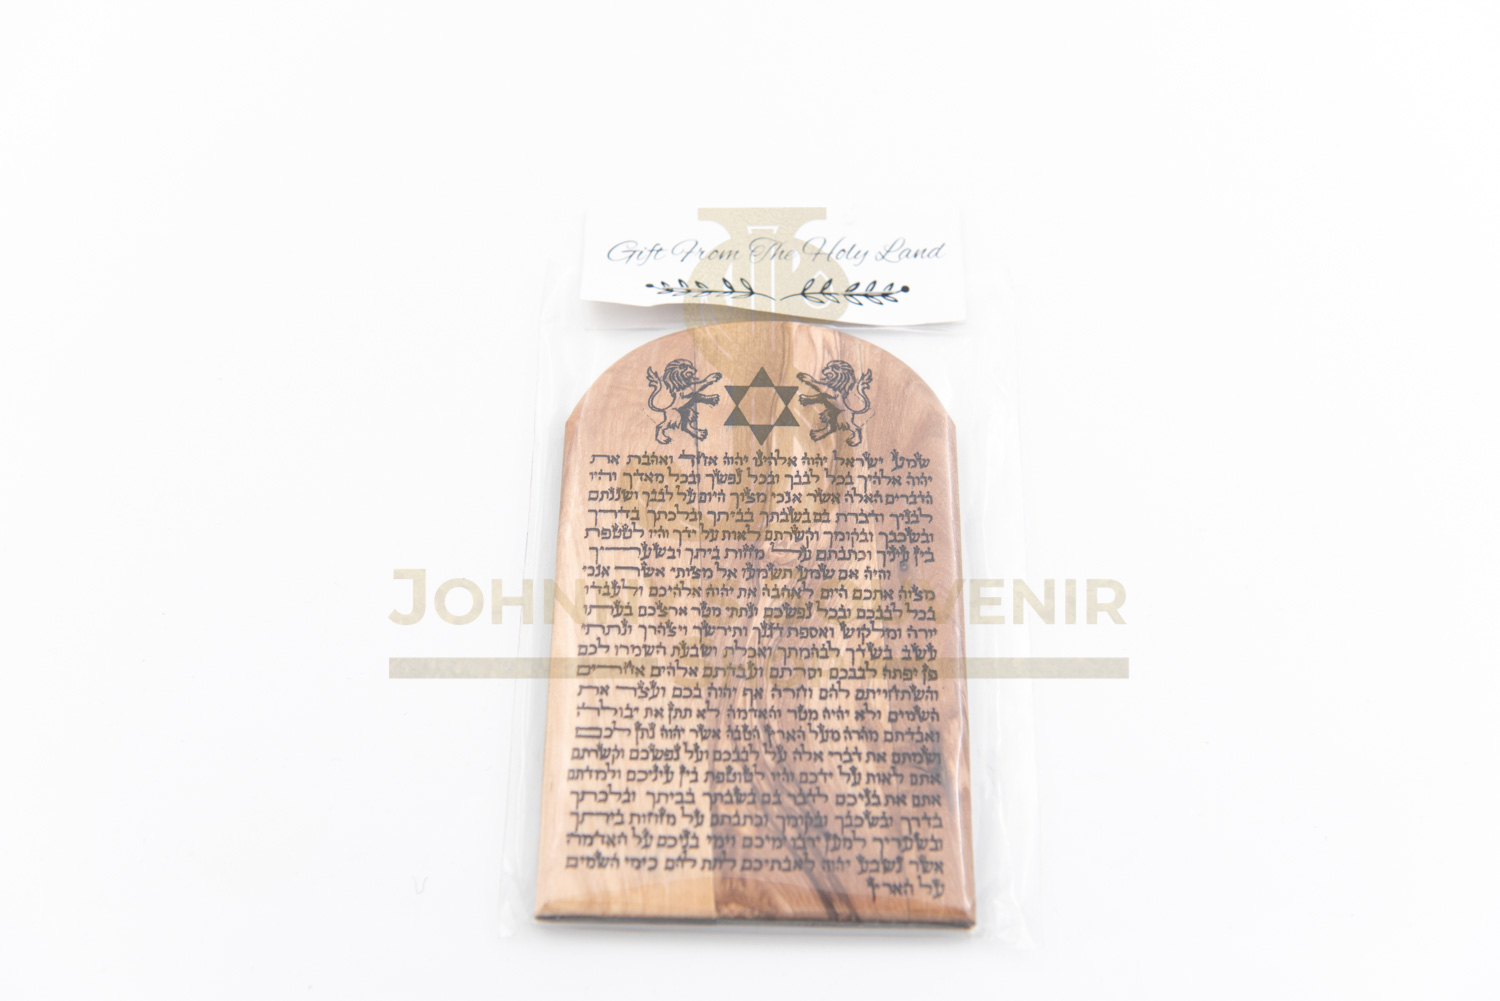 Gift From The Holy Land
שמע ישראל יהוה אלהינו יהוה אחד ואהבת את
יהוה אלהיך בכל לבבך ובכל נפשך ובכל מאדיך והיו
הדברים האלה אשר אנכי מצוך היום על לבבך ושננתם
לבניך ודברת בם בשבתך בביתך ובלכתך בדרך
ובשכבך ובקומך וקשרתם לאות על ידך והיו לטטפת
בין עיניך וכתבתם על מזזות ביתך ובשעריך
והיה אם שמע תשמעו אל מצותי אשר אנכי
מצוה אתכם היום לאהבה את יהוה אלהיכם ולעבדו
בכל לבבכם ובכל נפשכם ונתתי מטר ארצכם בעתו
יורה ומלקוש ואספת דגנך ותירשך ויצהרך ונתתי
עשב בשדך לבהמתך ואכלת ושבעת השמרו לכם
פן יפתה לבבכם וסרתם ועבדתם אלהים אחרים
והשתחויתם להם וחרה אף יהוה בכם ועצר את
השמים ולא יהיה מטר והאדמה לא תתן את יבולה
ואבדתם מהרה מעל הארץ הטבה אשר יהוה נתן לכם
ושמתם את דברי אלה על לבבכם ועל נפשכם וקשרתם
אתם לאות על ידכם והיו לטוטפת בין עיניכם ולמדתם
אתם את בניכם לדבר בם בשבתך בביתך ובלכתך
בדרך ובשכבך ובקומך וכתבתם על מזוזות ביתך
ובשעריך למען ירבו ימיכם וימי בניכם על האדמה
אשר נשבע יהוה לאבתיכם לתת להם כימי השמים
על הארץ